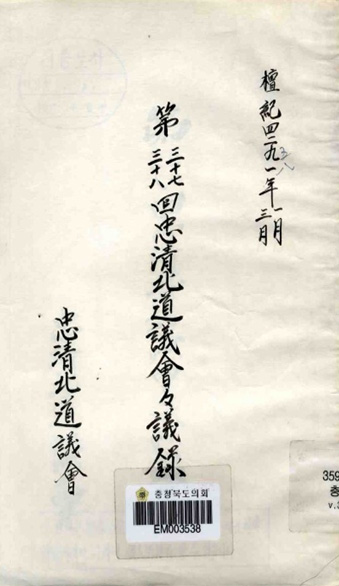 檀紀四二九一年一月
三月
第三十七回忠清北道議會々議錄
三十八
忠清北道議會
충청북도의회
EM003538
359
충
v.3